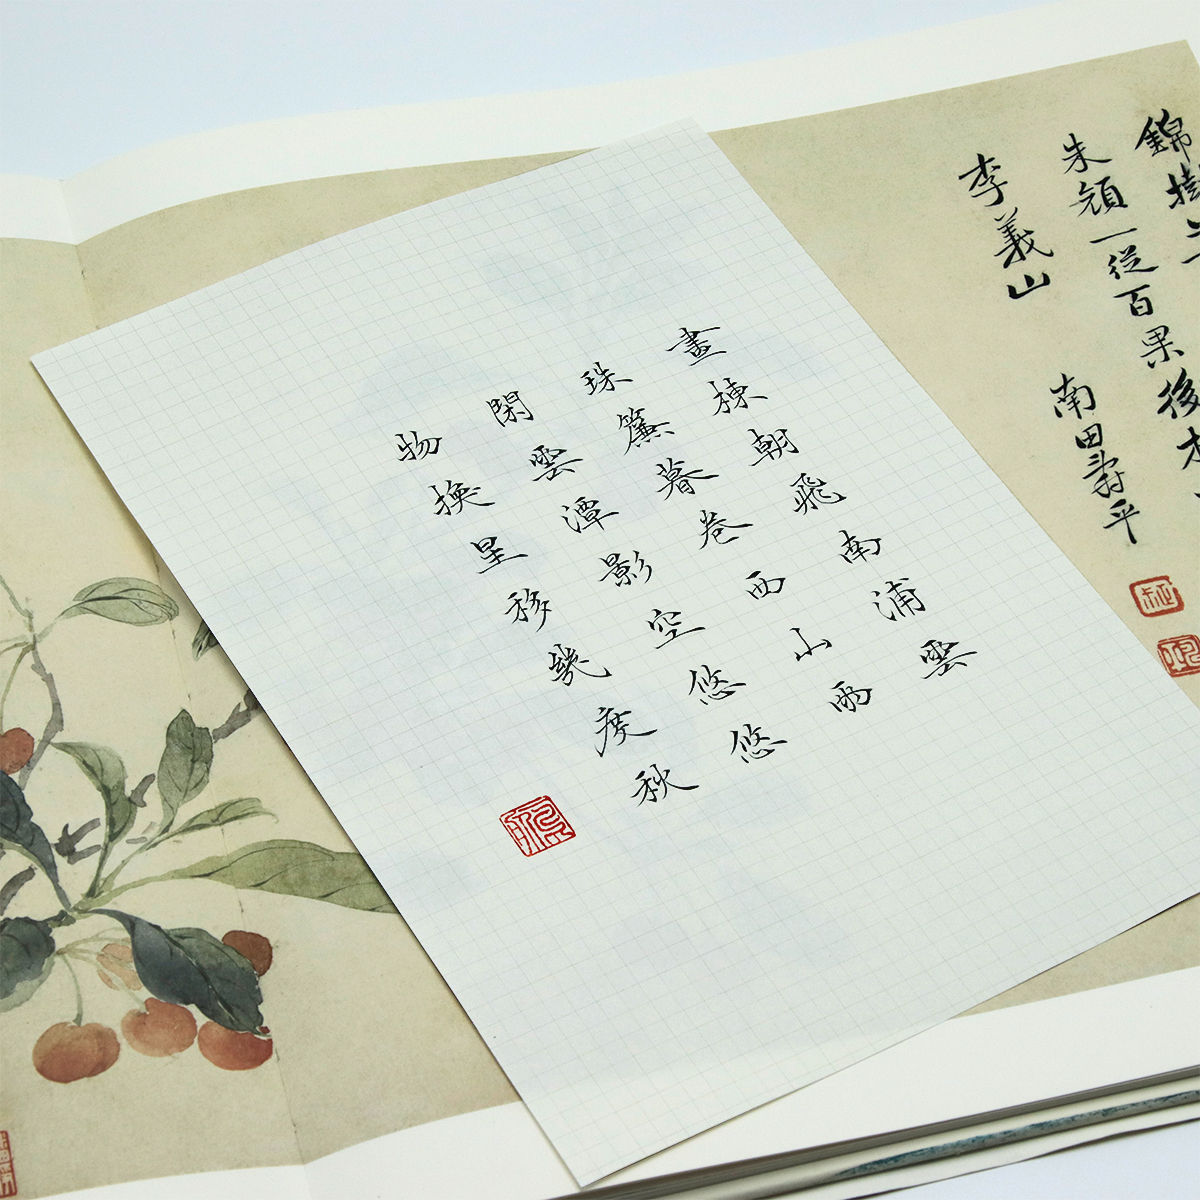 錦樹
朱一從百果後
南田壽平
李義山
畫棟朝飛南浦雲
珠簾暮卷西山雨
閑雲潭影空悠悠
物換星移幾度秋